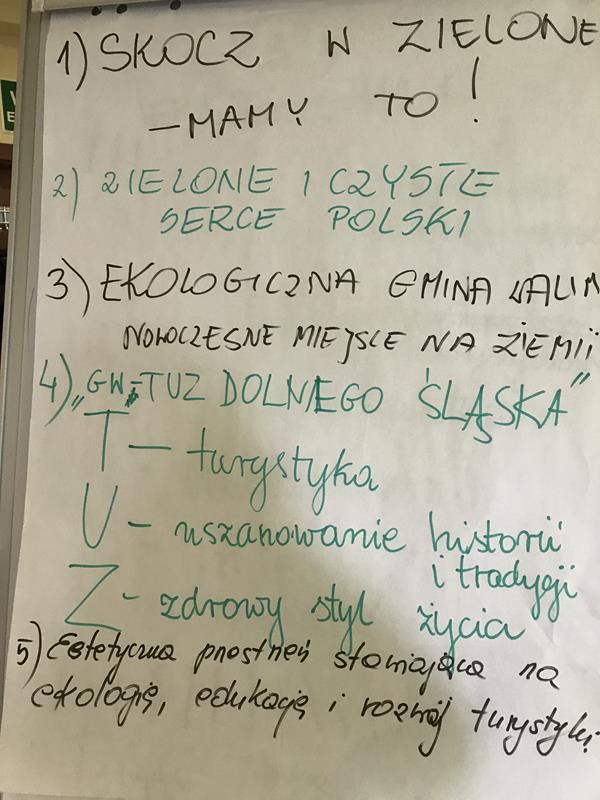 1) SKOCZ W ZIELONE
– MAMY TO !
2) ZIELONE I CZYSTE
SERCE POLSKI
3) EKOLOGICZNA GMINA WALIM
NOWOCZESNE MIEJSCE NA ZIEMII
4) „GW-TUZ DOLNEGO ŚLĄSKA"
T – turystyka
U – uszanowanie historii
i tradycji
Z – zdrowy styl życia
5) Estetyczna przestrzeń stawiająca na
ekologię, edukację i rozwój turystyki